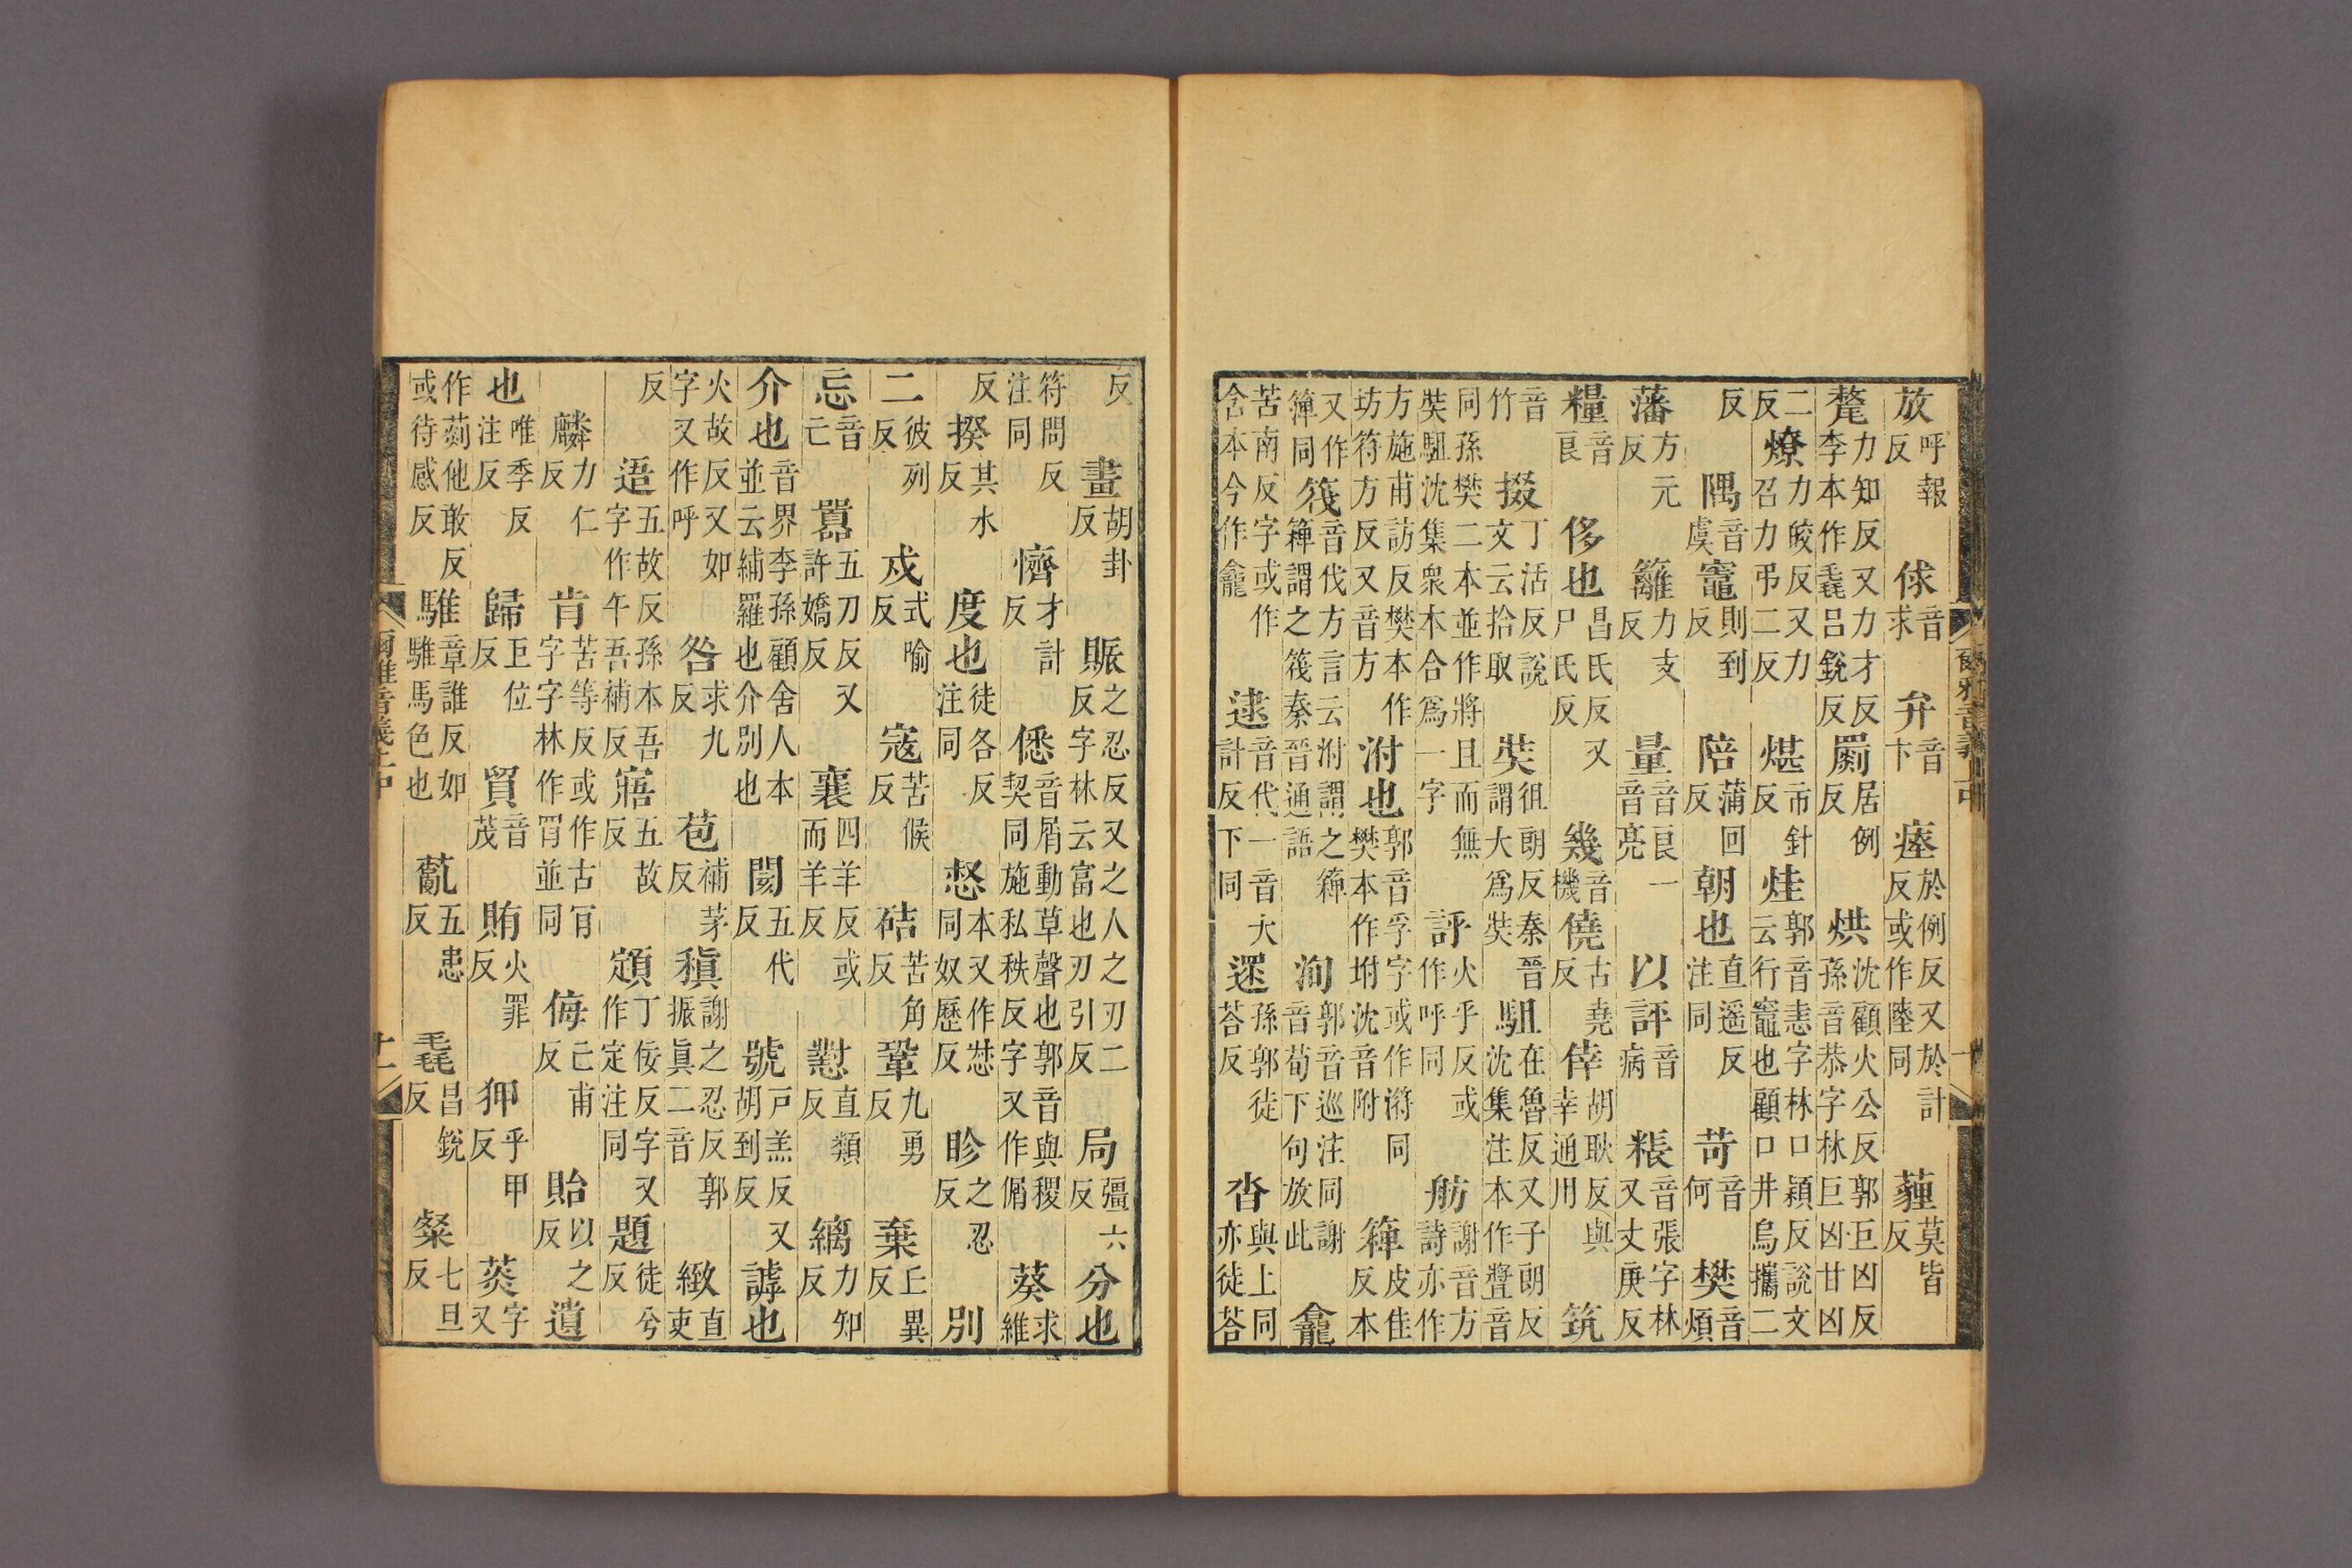 放呼報反俅音求弁音卞瘞於例反又於計反或作陸同薶莫皆反
氂力知反又力才反李本作毳呂銳反罽居例反烘沈顧火公反郭巨凶反孫音恭字林巨凶甘凶
二反燎力皎反又力召力弔二反煁市針反烓郭音恚字林口穎反說文云行竈也顧口井烏攜二
反隅音虞竈則到反陪蒲回反朝也直遥反注同苛音何樊音煩
藩方元反籬力支反量音良一音亮以評音病粻音張字林又丈庚反
糧音良侈也昌氏反又尸氏反幾音機僥古堯反倖胡耿反與幸通用筑
音竹掇丁活反說文云拾取奘徂朗反秦晉謂大爲奘駔在魯反又子朗反沈集注本作音
同孫樊二本並作將且而無奘駔沈集衆本合爲一字評火乎反或作呼同舫謝音方詩亦作
方施甫訪反樊本作坊符方反又音方泭也郭音孚字或作同樊本作坿沈音附箄皮佳反本
又作簰同筏音伐方言云泭謂之箄箄謂之筏秦晉通語洵郭音巡注同謝音荀下句放此龕
苦南反字或作含本今作龕逮音代一音大計反下同遝孫郭徒荅反沓與上同亦徒荅
爾雅音義上中
反畫胡卦反賑之忍反又之人之刃二反字林云富也刃引反局彊六反分也
符問反注同懠才計反僁音屑動草聲也郭音與稷契同施私秩反字又作偦葵求維
反揆其水反度也徒各反注同惄本又作愵同奴歷反眕之忍反別
二彼列反戍式喻反寇苦候反硈苦角反鞏九勇反棄丘異反
忘音亡嚻五刀反又許嬌反襄四羊反或而羊反懟直類反縭力知反
介也音界李孫顧舍人本並云縭羅也介別也閡五代反號戶羔反又胡到反謼也
火故反又如字又作呼咎求九反苞補茅反稹謝之忍反郭振眞二音緻直吏
反逜五故反孫本吾字作午吾補反寤五故反頲丁佞反字又作定注同題徒兮反
麟力仁反肯苦等反或作古肎字字林作肎並同侮亡甫反貽以之反遺
也唯季反注反歸巨位反貿音茂賄火罪反狎乎甲反菼字又
作䓤他敢反或待感反騅章誰反如騅馬色也薍五患反毳昌銳反粲七旦反
爾雅音義上中
十一